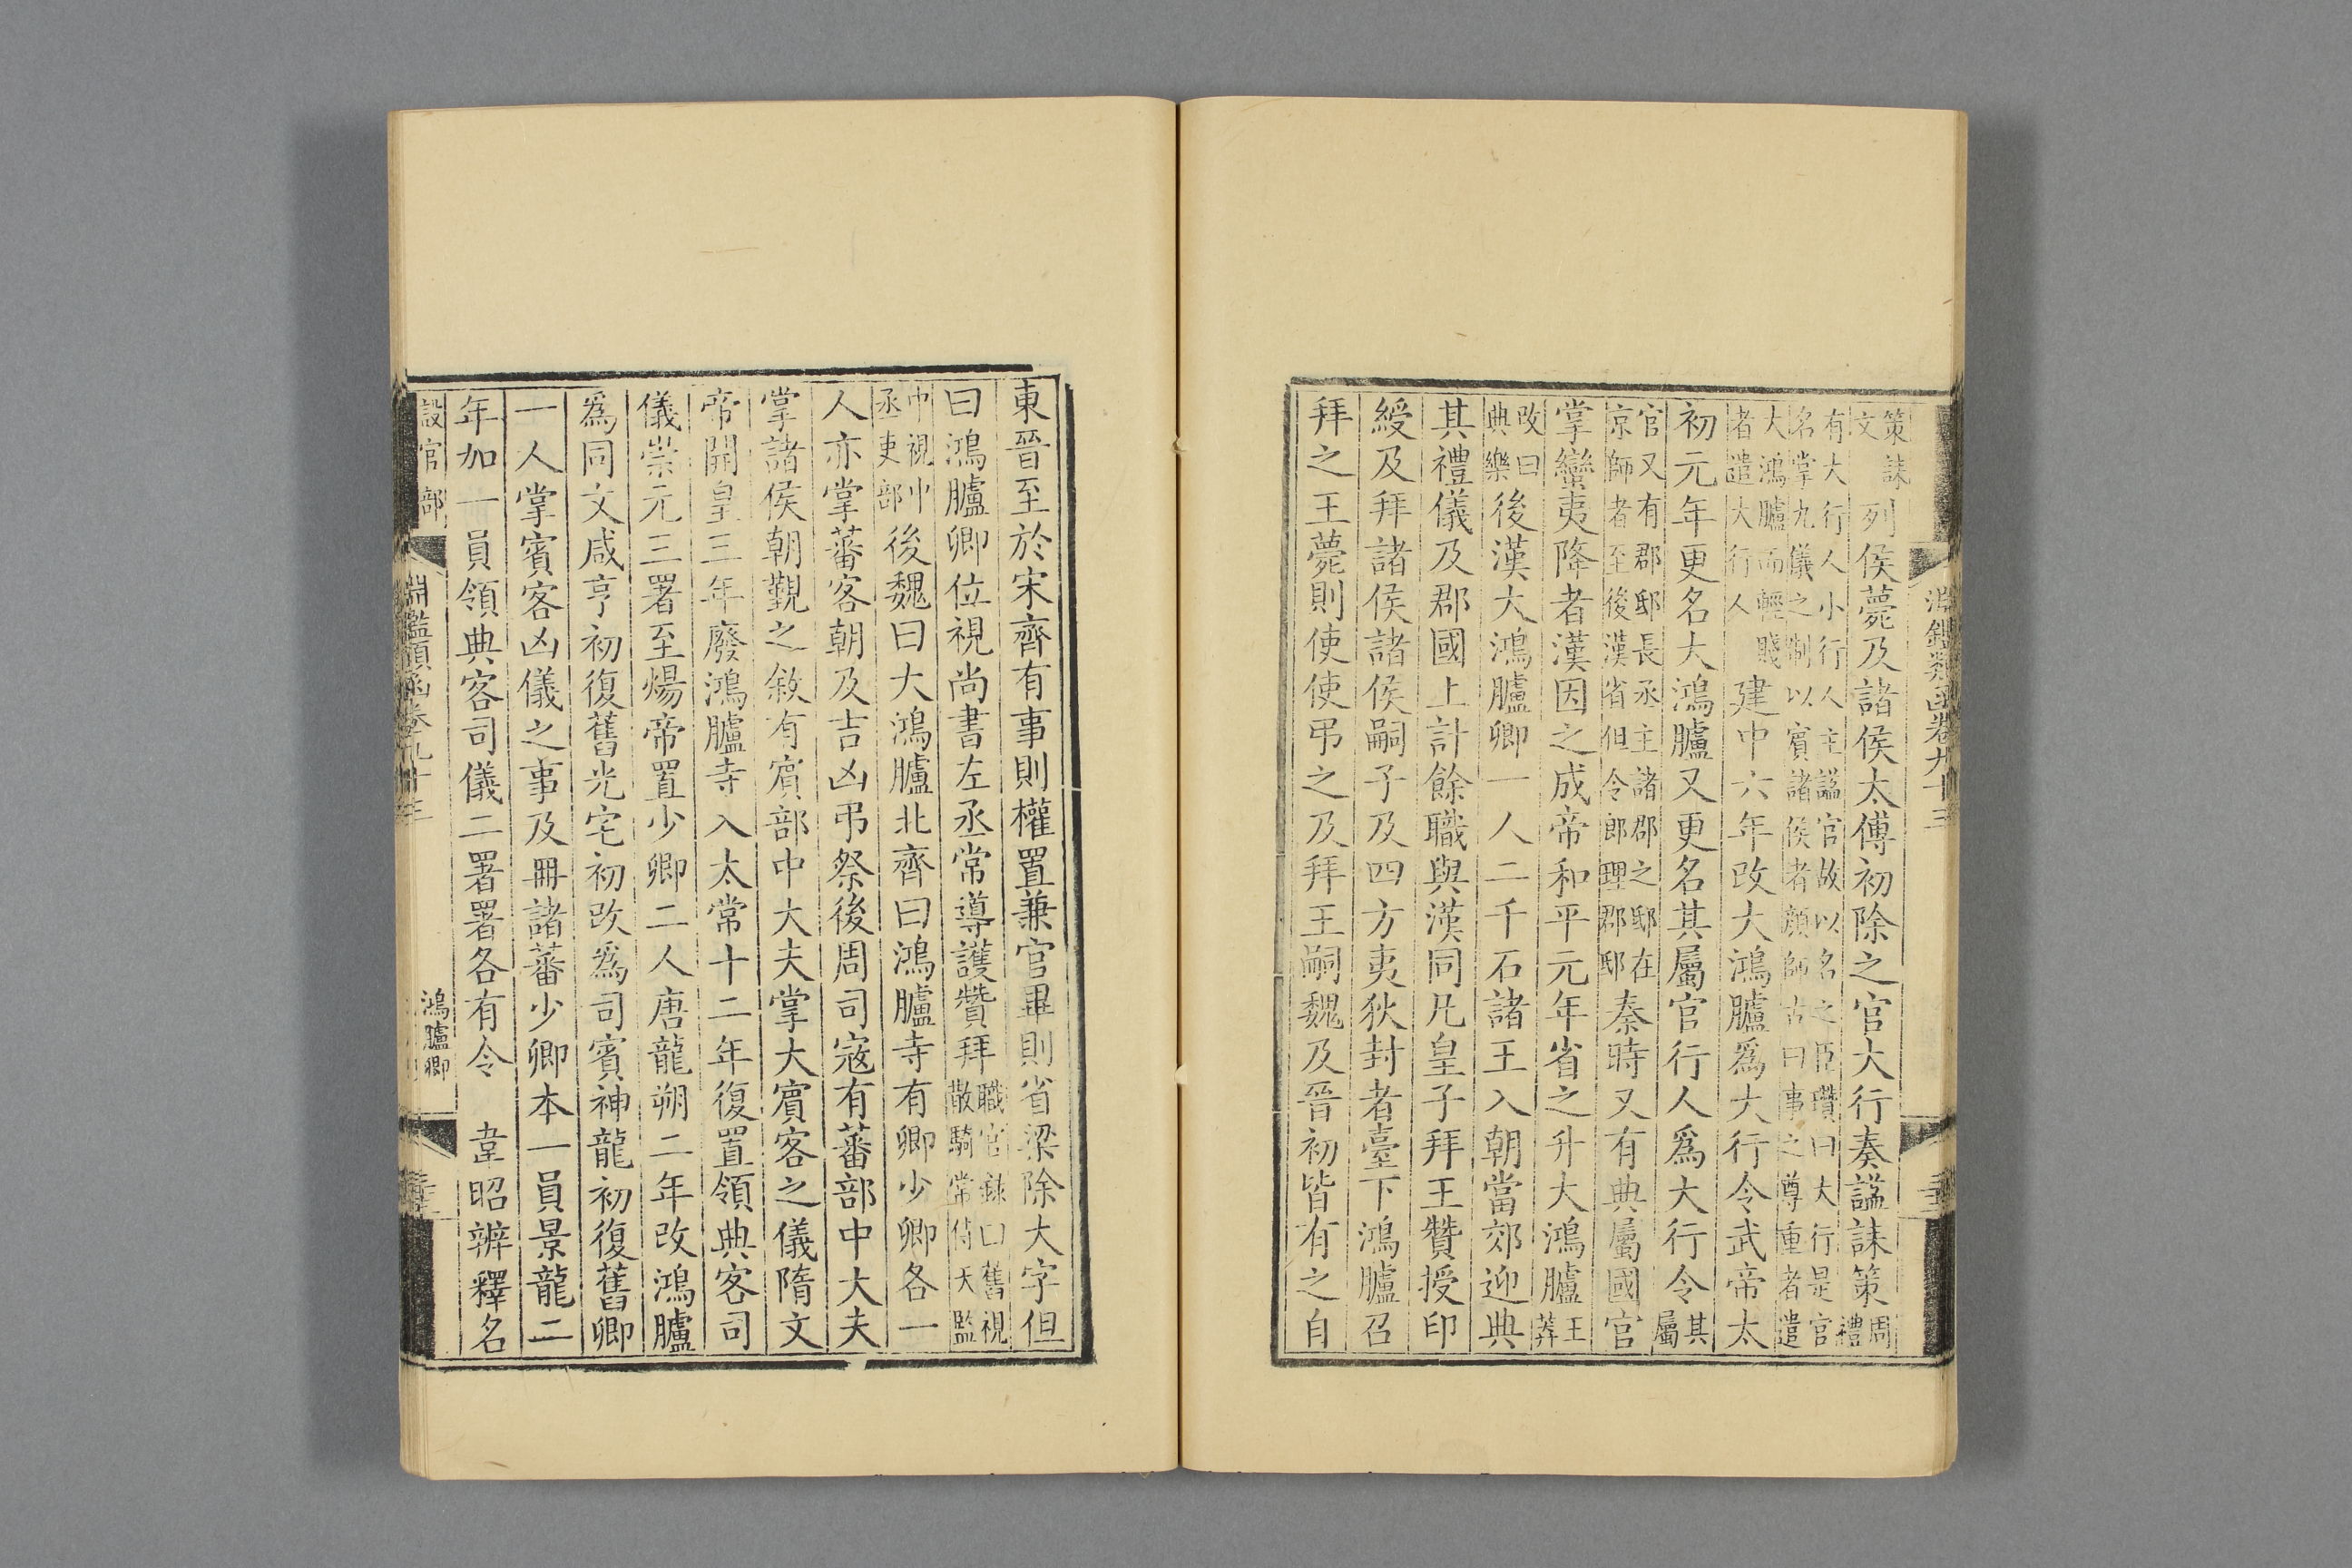 淵鑑類函卷九十三
策誄文列侯薨及諸侯太傅初除之官大行奏謚誄策周禮
有大行人小行人主謚官故以名之臣瓚曰大行是官
名掌九儀之制以賓諸侯者顏師古曰事之尊重者遣
大鴻臚而輕賤者遣大行人建中六年改大鴻臚爲大行令武帝太
初元年更名大鴻臚又更名其屬官行人爲大行令其屬
官又有郡邸長丞主諸郡之邸在京師者至後漢省但令郎理郡邸秦時又有典屬國官
掌蠻夷降者漢因之成帝和平元年省之升大鴻臚王莽
改曰典樂後漢大鴻臚卿一人二千石諸王入朝當郊迎典
其禮儀及郡國上計餘職與漢同凡皇子拜王贊授印
綬及拜諸侯諸侯嗣子及四方夷狄封者臺下鴻臚召
拜之王薨則使使弔之及拜王嗣魏及晉初皆有之自
東晉至於宋齊有事則權置兼官畢則省梁除大字但
曰鴻臚卿位視尚書左丞常導護贊拜職官錄曰舊視散騎常侍天監
中視中丞吏部後魏曰大鴻臚北齊曰鴻臚寺有卿少卿各一
人亦掌蕃客朝及吉凶弔祭後周司寇有蕃部中大夫
掌諸侯朝覲之敘有賓部中大夫掌大賓客之儀隋文
帝開皇三年廢鴻臚寺入太常十二年復置領典客司
儀崇元三署至煬帝置少卿二人唐龍朔二年改鴻臚
爲同文咸亨初復舊光宅初改爲司賓神龍初復舊卿
一人掌賓客凶儀之事及冊諸蕃少卿本一員景龍二
年加一員領典客司儀二署署各有令　韋昭辨釋名
設官部
淵鑑類函卷九十三
鴻臚卿